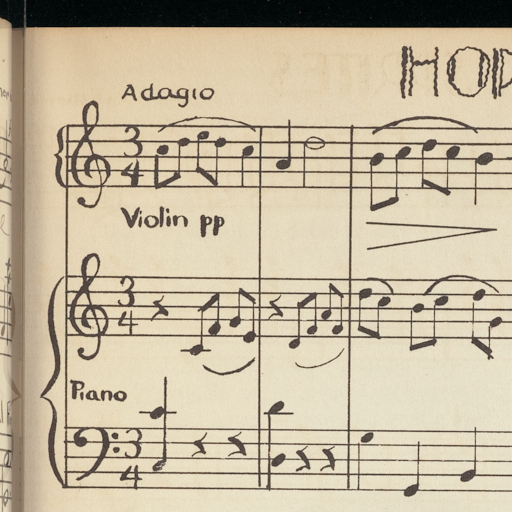 HOP
Adagio
3
4
Violin pp
3
4
Piano
3
4